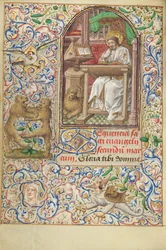 Sequentia sā
cti euangelii
secundū mar
cum. Gloria tibi domine